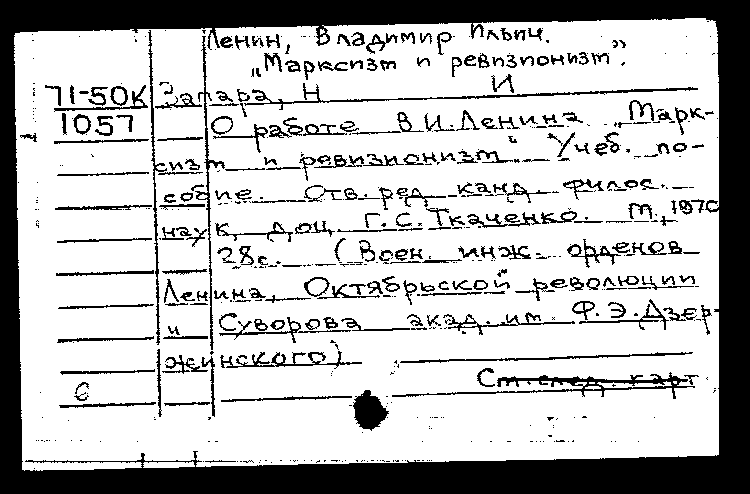 Ленин, Владимир Ильич.
„Марксизм и ревизионизм".
71-50К Запара, Н И
1057 О работе В.И.Ленина „Марк-
сизм и ревизионизм" Учеб. по-
собие. Отв. ред. канд. филос.
наук, доц. Г.С.Ткаченко. М., 1970
28с. (Воен. инж. орденов
Ленина, Октябрьской революции
и Суворова акад. им. Ф.Э.Дзер-
жинского)
См. след. карт
6